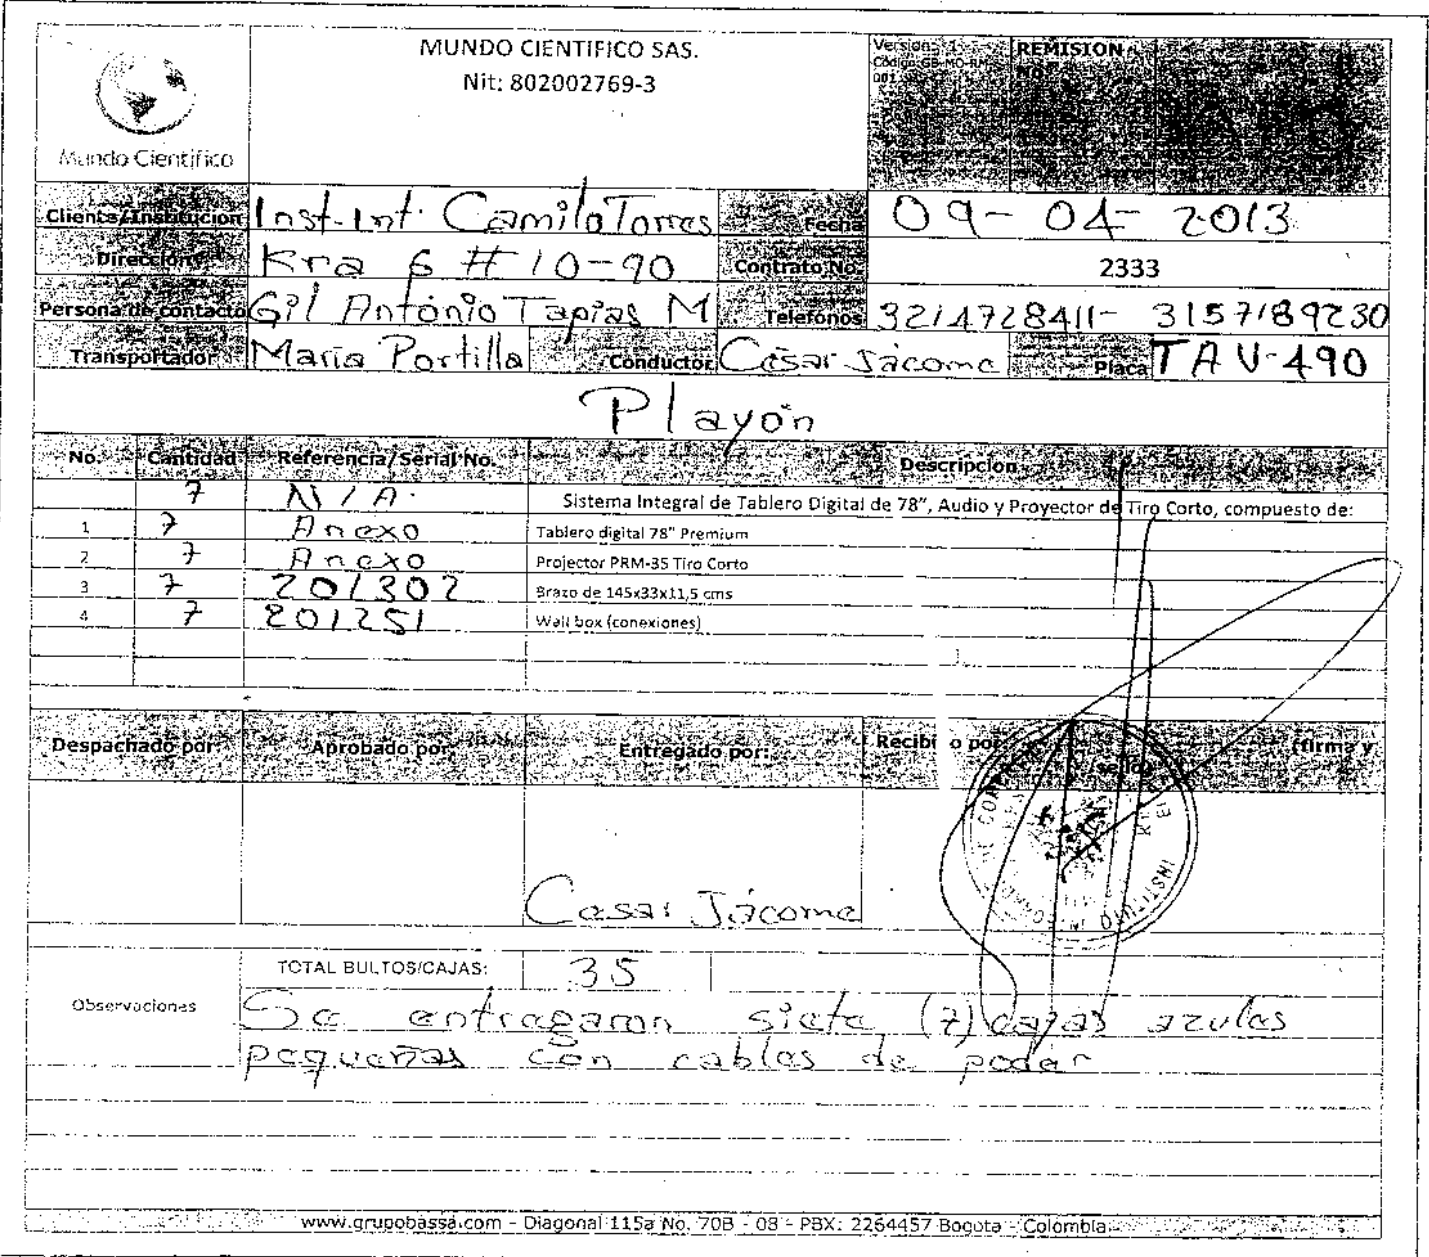 MUNDO CIENTIFICO SAS.
Nit: 802002769-3
Mundo Científico
Version: 1
Codigo: GB-MO-RM-
001
REMISION
No
Cliente/Institucion Inst. Int. Camilo Torres Fecha 09-04-2013
Direccion Kra 6 # 10-90 Contrato No. 2333
Persona de contacto Gil Antonio Tapias M Telefonos 3214728411- 3157189230
Transportador Maria Portilla Conductor César Jácome Placa TAV-490
Playón
No. Cantidad Referencia/Serial No. Descripcion
7 N/A. Sistema Integral de Tablero Digital de 78", Audio y Proyector de Tiro Corto, compuesto de:
1 7 Anexo Tablero digital 78" Premium
2 7 Anexo Projector PRM-35 Tiro Corto
3 7 201302 Brazo de 145x33x11,5 cms
4 7 201251 Wall box (conexiones)
Despachado por: Aprobado por: Entregado por: Recibi o por (firma y
sello)
INSTITUTO
Cesar Jácome
TOTAL BULTOS/CAJAS: 35
Observaciones Se entregaron siete (7) cajas azules
pequeñas con cables de poder
www.grupobassa.com - Diagonal 115a No. 70B - 08 - PBX: 2264457 Bogota - Colombia